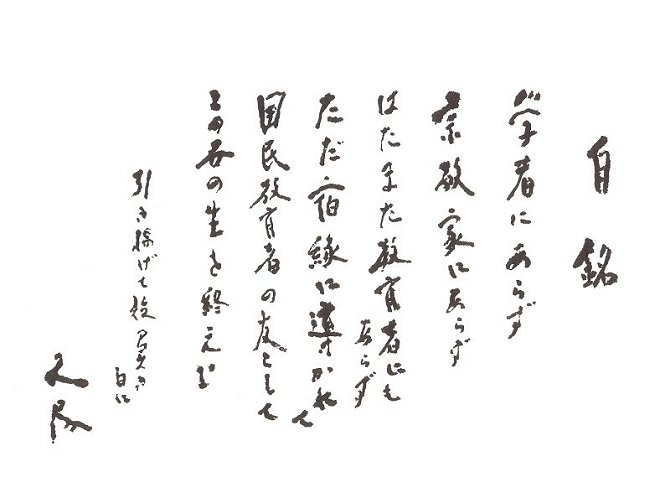 自銘
学者にあらず
宗教家にあらず
はたまた教育者にも
あらず
ただ宿縁に導かれて
国民教育者の友として
この世の生を終えむ
引き揚げて後
日に